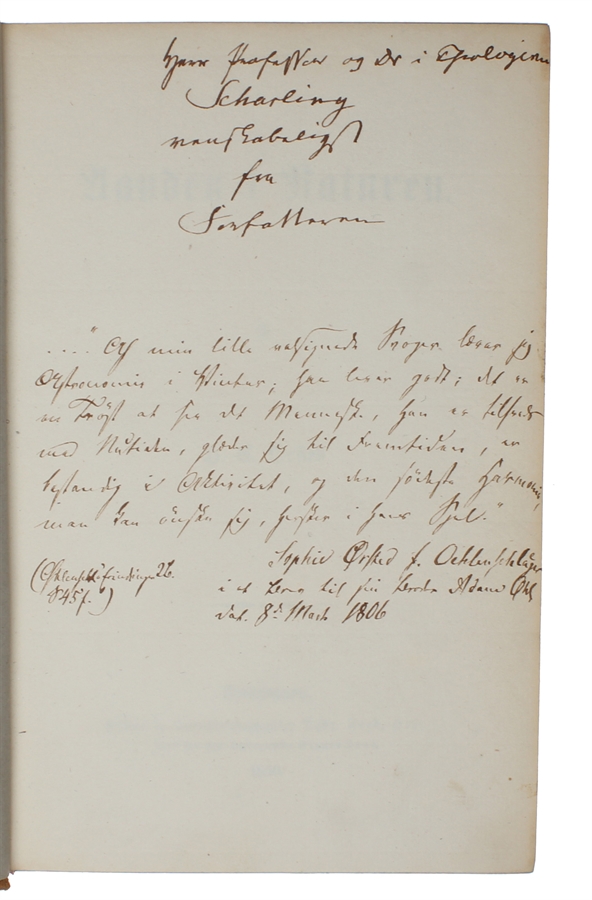 Herr Professor og Dr i Theologien
Scharling
venskabeligst
fra
Forfatteren
...." Af min lille velsignede Svoger lærer jeg
Astronomie i Vinter; han lever godt; det er
en Trøst at see det Menneske, han er tilfreds
med Nutiden, glæder sig til Fremtiden, er
bestandig i Aktivitet, og den sødeste Harmonie,
man kan ønske sig, hersker i hans Sjel."
Sophie Ørsted f. Oehlenschläger
i et Brev til sin Broder Adam Øhl.
dat. 8d. Marts 1806
S 45 f.)